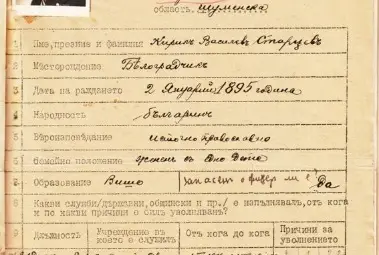 область Шуменска
1 Име, презиме и фамилия Кирилъ Василевъ Старцевъ
2 Месторождение Бѣлоградчикъ
3 Дата на раждането 2 Януарий 1895 година
4 Народность българинъ
5 Вѣроизповѣдание източно православно
6 Семейно положение женен съ едно дете
7 Образование Висшо запасенъ офицер ли е? Да
8 Какви служби /държавни, общински и пр./ е изпълнявалъ, от кога и по какви причини е билъ уволняванъ?
9 Длъжность Учреждение въ което е служилъ От кога до кога Причини за уволнението